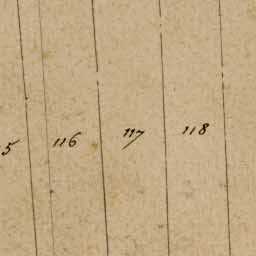 5 116 117 118